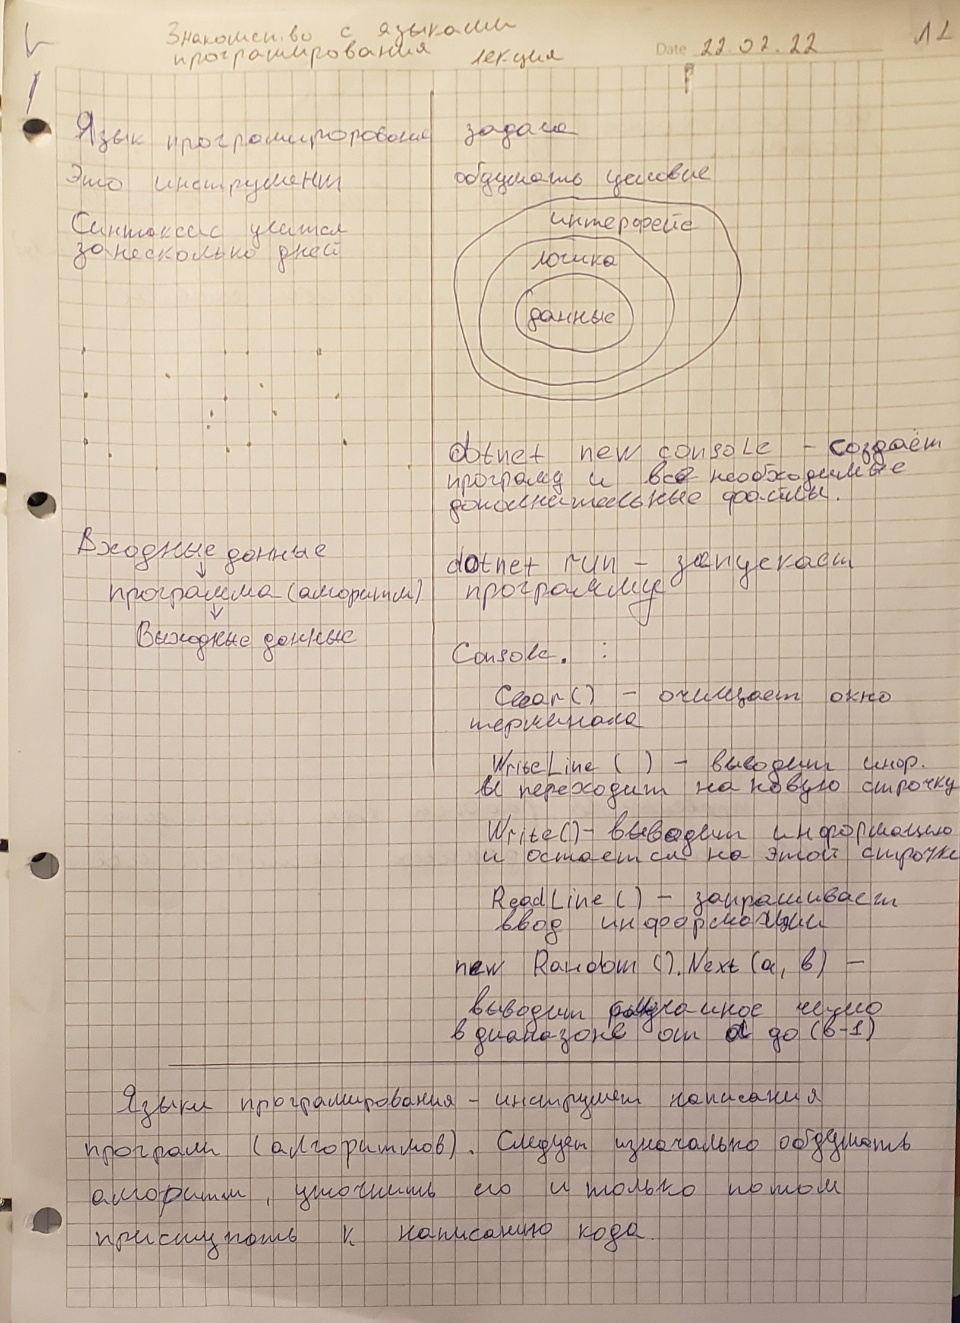 Знакомство с языками
программирования лекция
Date 22.02.22
Язык программирорования
Это инструмент
Синтаксис учится
за несколько дней
Входные данные
↓
программа (алгоритм)
↓
Выходные данные
задача
обдумать условие
интерфейс
логика
данные
dotnet new console - создаёт
програму и все необходимые
дополнительные файлы.
dotnet run - запускает
программу
Console. :
Clear() - очищает окно
терминала
WriteLine ( ) - выводит инфор.
и переходит на новую строчку
Write() - выводит информацию
и остается на этой строчке
ReadLine ( ) - запрашивает
ввод информации
new Random ().Next (a, b) -
выводит число
в диапазоне от a до (b-1)
Языки программирования - инструмент написания
програм (алгоритмов). Следует изначально обдумать
алгоритм, уточнить его и только потом
приступать к написанию кода.